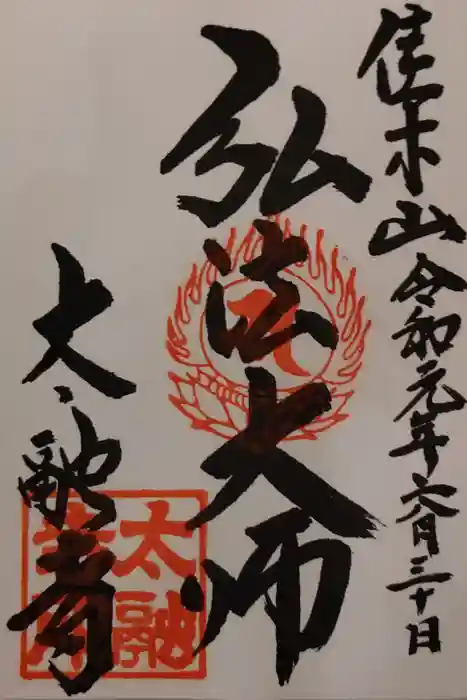 佳木山令和元年六月三十日
弘法大師
太融寺
太融
寺印